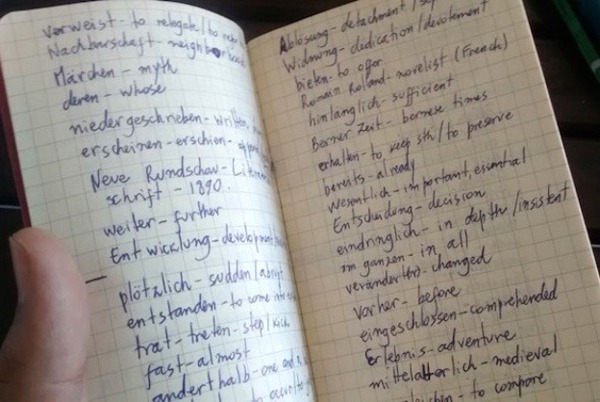 verweist - to relegate / to
Nachbarschaft - neighborhood
Märchen - myth
deren - whose
niedergeschrieben - written,
erscheinen - erschien -
Neue Rundschau -
schrift - 1890.
weiter - further
Entwicklung - development
plötzlich - sudden / abrupt
entstanden - to come into
trat - treten - step / kick
fast - almost
anderthalb - one and
Ablösung - detachment /
Widmung - dedication / devotement
bieten - to offer
Romain Rolland - novelist (French)
hinlänglich - sufficient
Berner Zeit - bernese times
erhalten - to keep sth / to preserve
bereits - already
wesentlich - important, essential
Entscheidung - decision
eindringlich - in depth / insistent
im ganzen - in all
verändert(e) - changed
vorher - before
eingeschlossen - comprehended
Erlebnis - adventure
mittelalterlich - medieval
- to compare